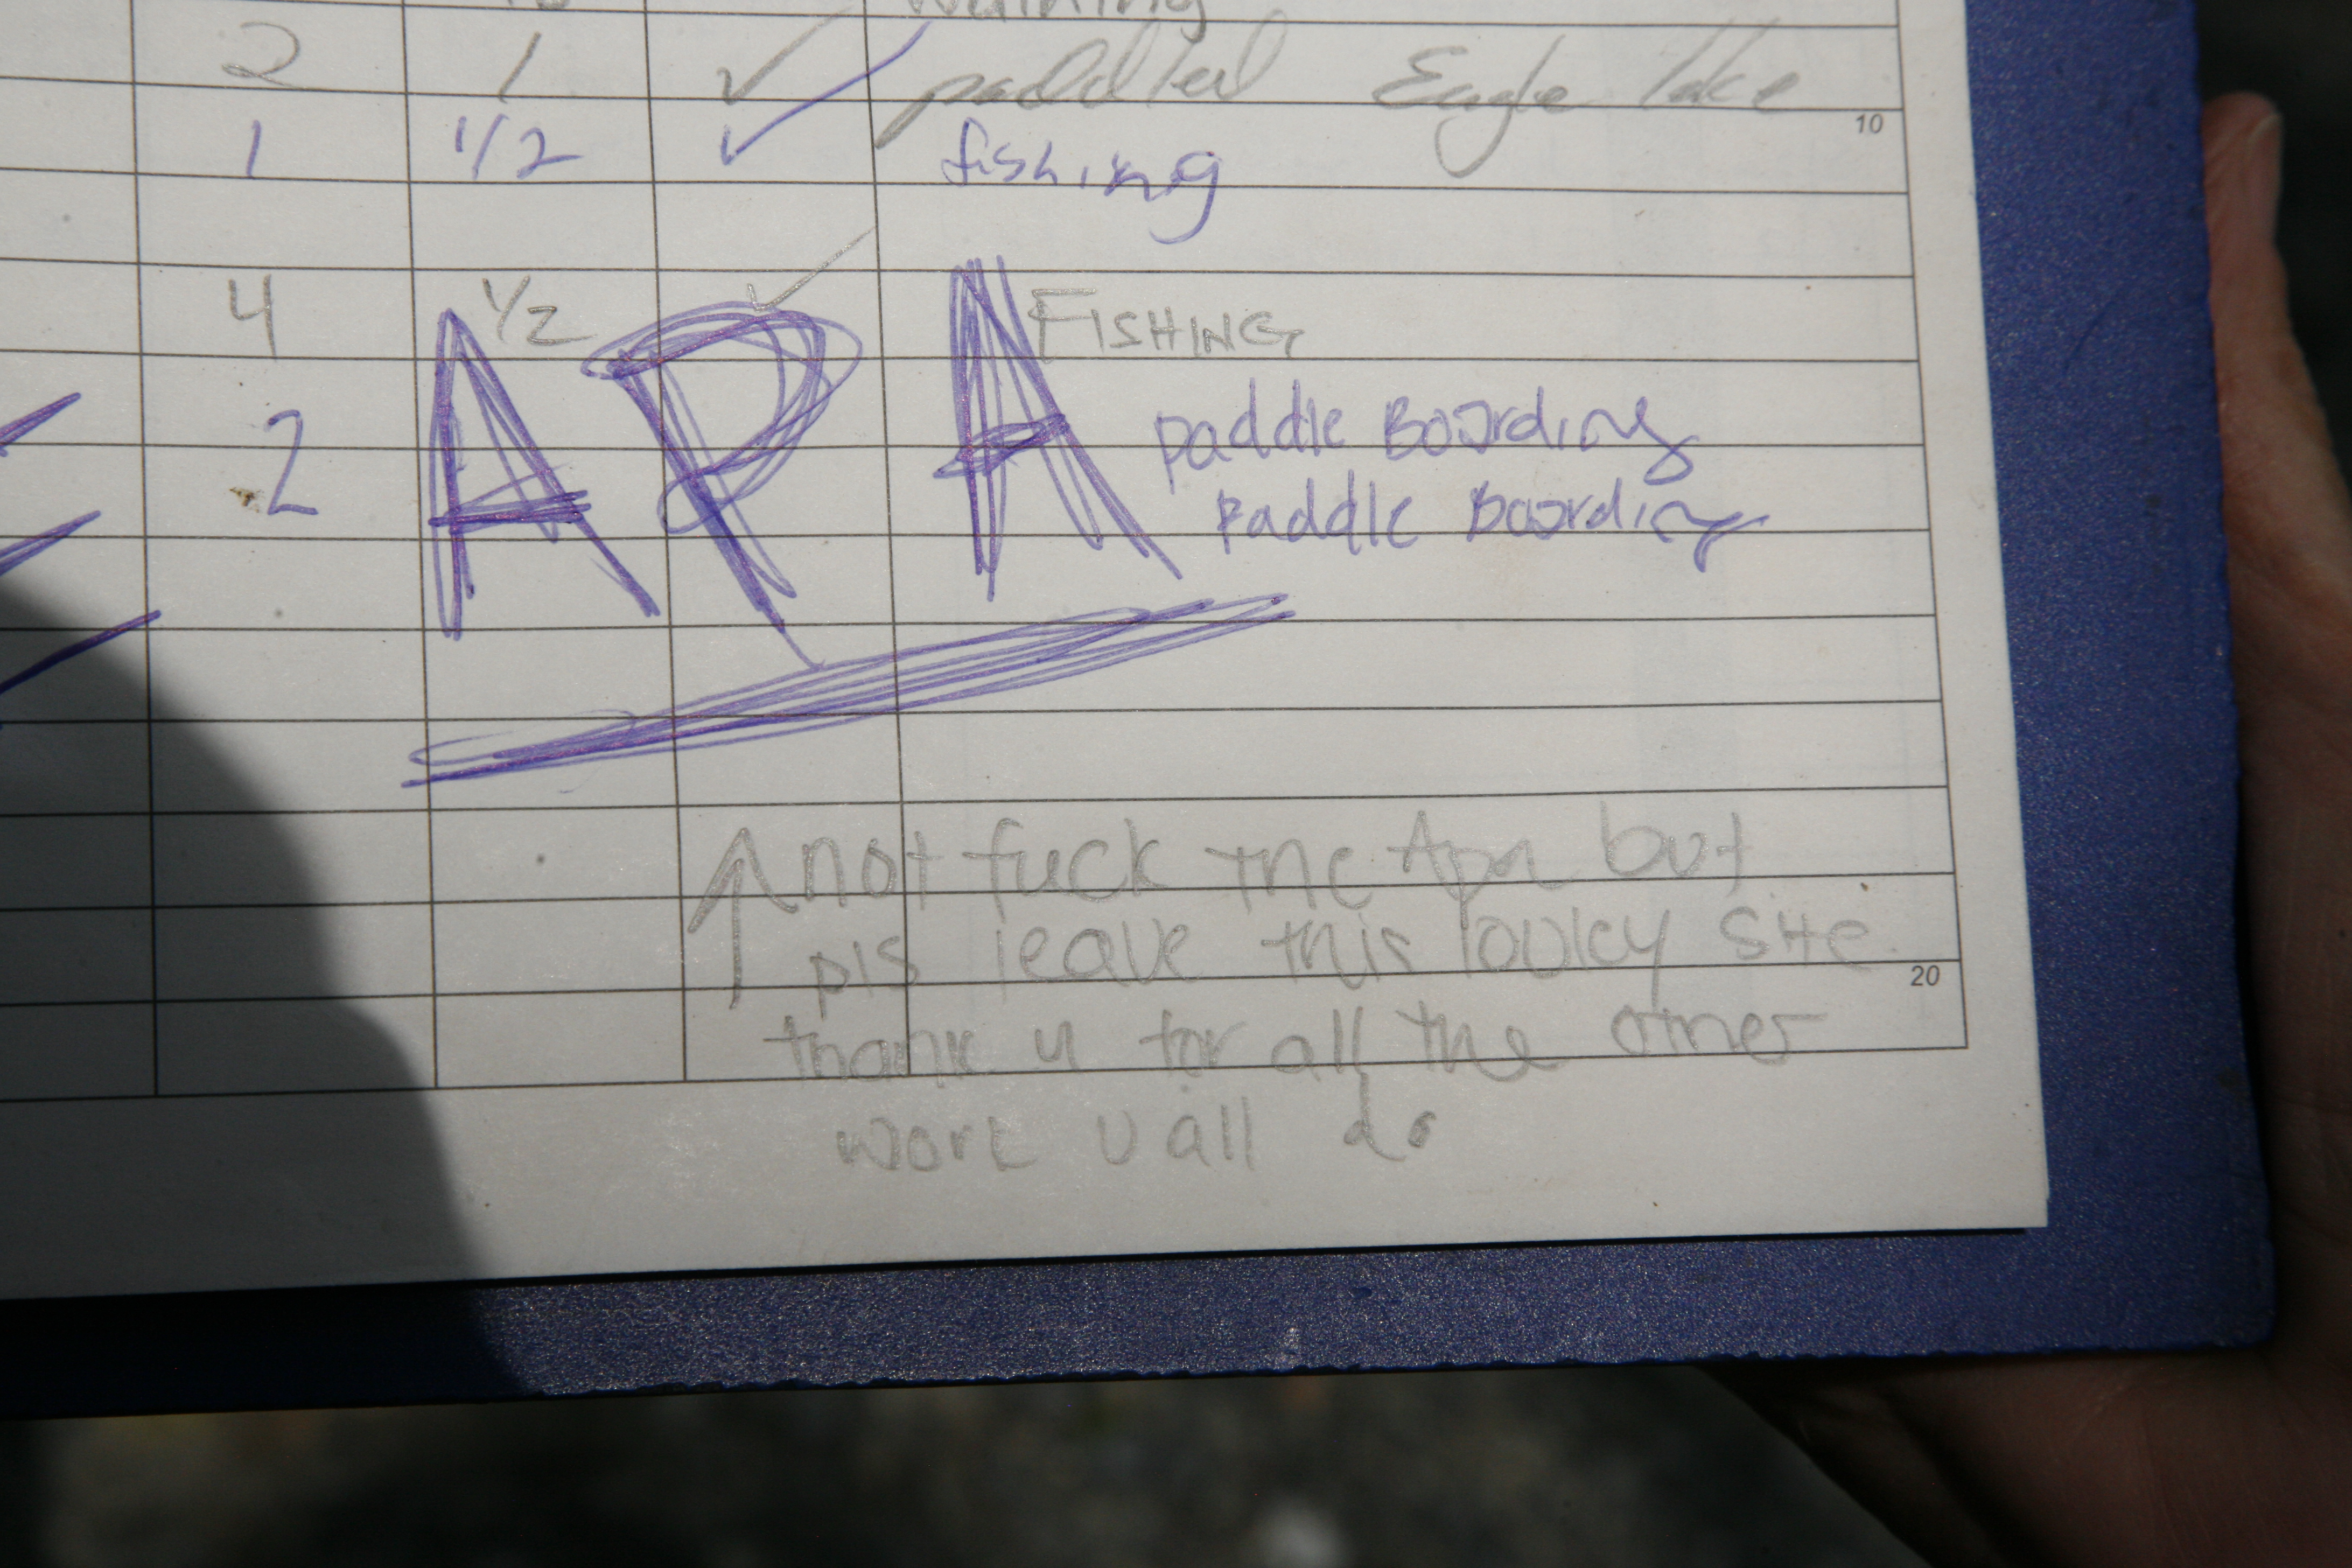 2 1 ✓ paddled Eagle lake
10
1 1/2 ✓ fishing
4 1/2 ✓ FISHING
2 APA paddle Boarding
paddle Boarding
↑ not fuck the Apa but
pls leave this lovley site
20
thank u for all the other
work u all do